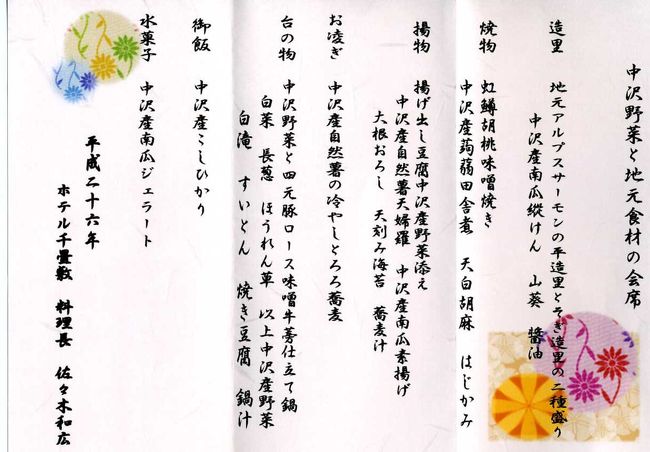 中沢野菜と地元食材の会席
造里　地元アルプスサーモンの平造里とそぎ造里の二種盛り
中沢産南瓜縦けん　山葵　醬油
焼物　虹鱒胡桃味噌焼き
中沢産蒟蒻田舎煮　天白胡麻　はじかみ
揚物　揚げ出し豆腐中沢産野菜添え
中沢産自然薯天婦羅　中沢産南瓜素揚げ
大根おろし　天刻み海苔　蕎麦汁
お凌ぎ　中沢産自然薯の冷やしとろろ蕎麦
台の物　中沢野菜と四元豚ロース味噌牛蒡仕立て鍋
白菜　長葱　ほうれん草　以上中沢産野菜
白滝　すいとん　焼き豆腐　鍋汁
御飯　中沢産こしひかり
水菓子　中沢産南瓜ジェラート
平成二十六年
ホテル千畳敷　料理長　佐々木和広